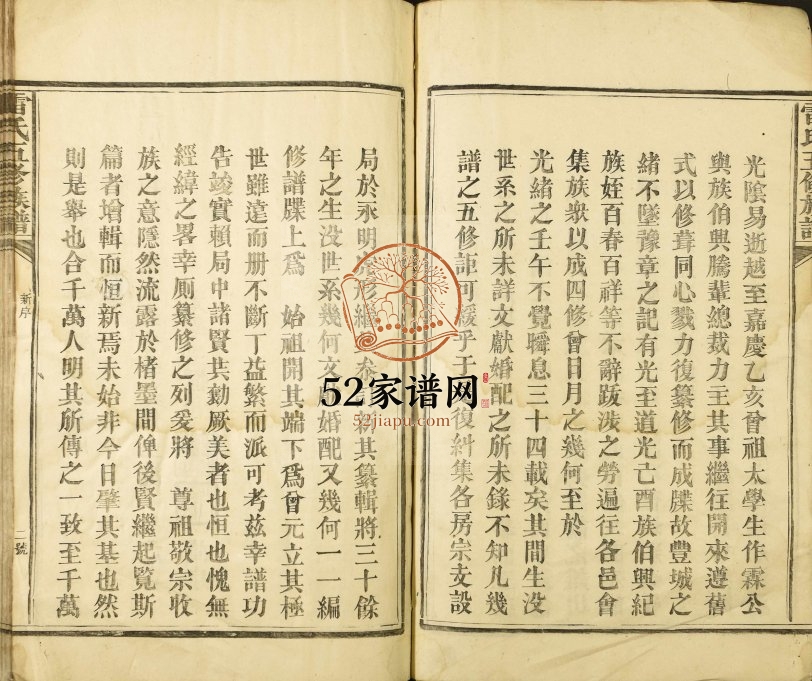 光陰易逝越至嘉慶乙亥曾祖太學生作霖公
與族伯興騰輩總裁力主其事繼往開來遵舊
式以修葺同心戮力復纂修而成牒故豐城之
緒不墜豫章之記有光至道光己酉族伯興紀
族姪百春百祥等不辭跋涉之勞遍往各邑會
集族衆以成四修曾日月之幾何至於
光緒之壬午不覺瞬息三十四載矣其間生没
世系之所未詳文獻婚配之所未錄不知凡幾
譜之五修詎可緩乎 復糾集各房宗支設
局於永明 其纂輯將三十餘
年之生没世系幾何文 婚配又幾何一一編
修譜牒上爲 始祖開其端下爲曾元立其極
世雖遠而册不斷丁益繁而派可考茲幸譜功
告竣實賴局中諸賢共勷厥美者也恒也愧無
經緯之畧幸厠纂修之列爰將 尊祖敬宗收
族之意隱然流露於楮墨間俾後賢繼起覽斯
篇者增輯而恒新焉未始非今日肇其基也然
則是舉也合千萬人明其所傳之一致至千萬
雷氏五修族譜
新序
號
52家谱网
52jiapu.com